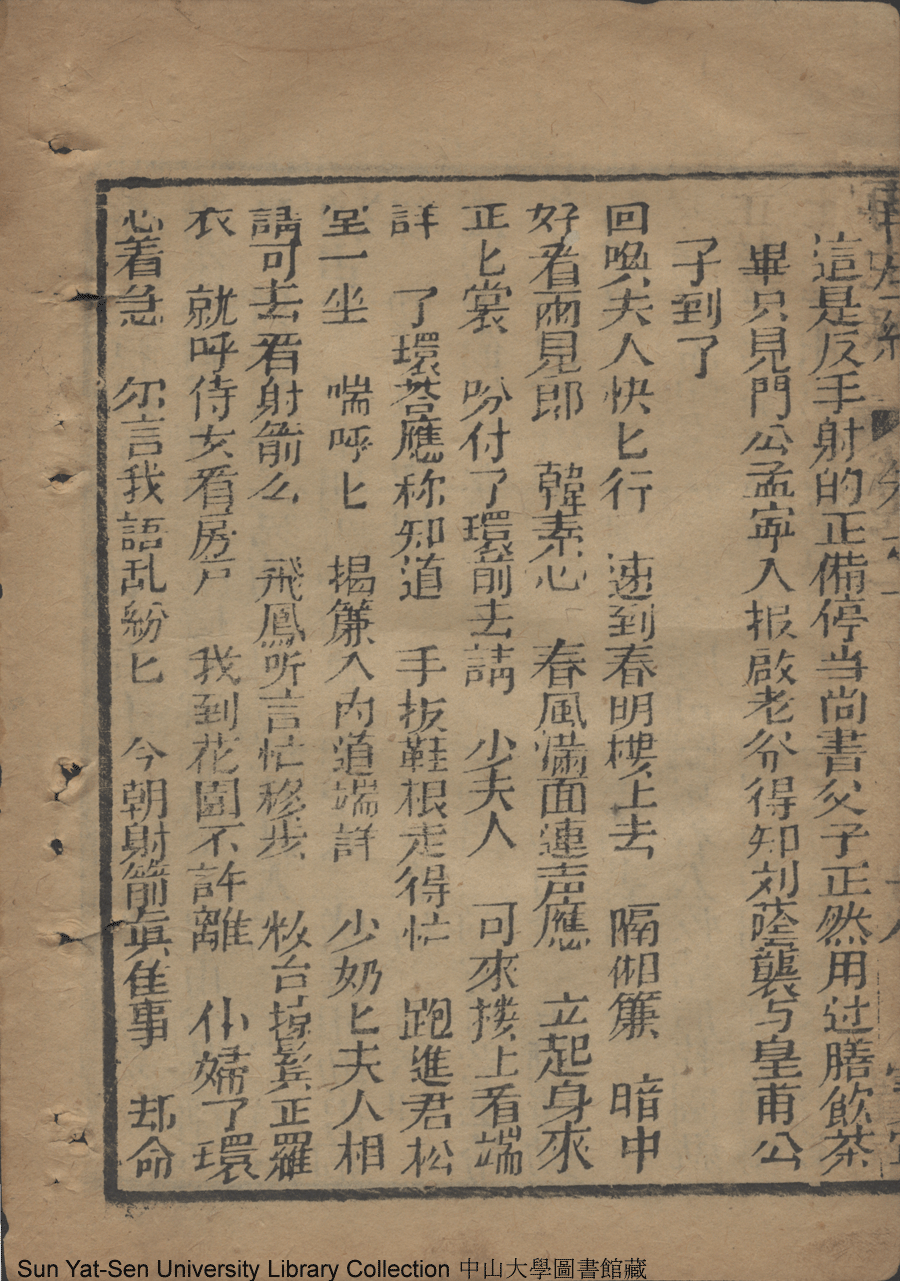 這是反手射的正備停当尚書父子正然用过膳飲茶
畢只見門公孟寧入报啟老爷得知刘蔭襲与皇甫公
子到了
回喚夫人快匕行 速到春明樓上去 隔湘簾 暗中
好看兩見郎 韓素心 春風滿面連声應 立起身來
正匕裳 吩付了環前去請 少夫人 可來搂上看端
詳 了環荅應称知道 手抜鞋根走得忙 跑進君松
一坐 喘呼匕 揭簾入內道端詳 少奶匕夫人相
請可去看射箭么 飛鳳听言忙移步 台掠鬂正羅
衣 就呼侍女看房户 我到花園不許離 仆婦了環
心着急 尔言我語乱紛匕 今朝射箭眞佳事 却命
Sun Yat-Sen University Library Collection 中山大學圖書館藏